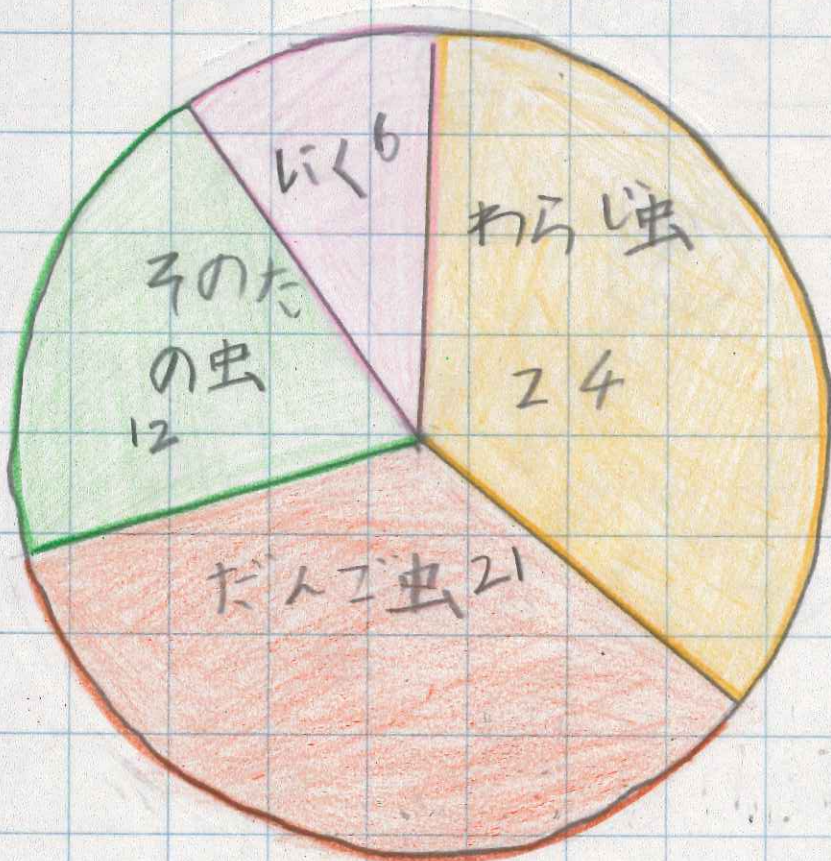 にく6
わらじ虫
24
そのた
の虫
12
だんご虫21